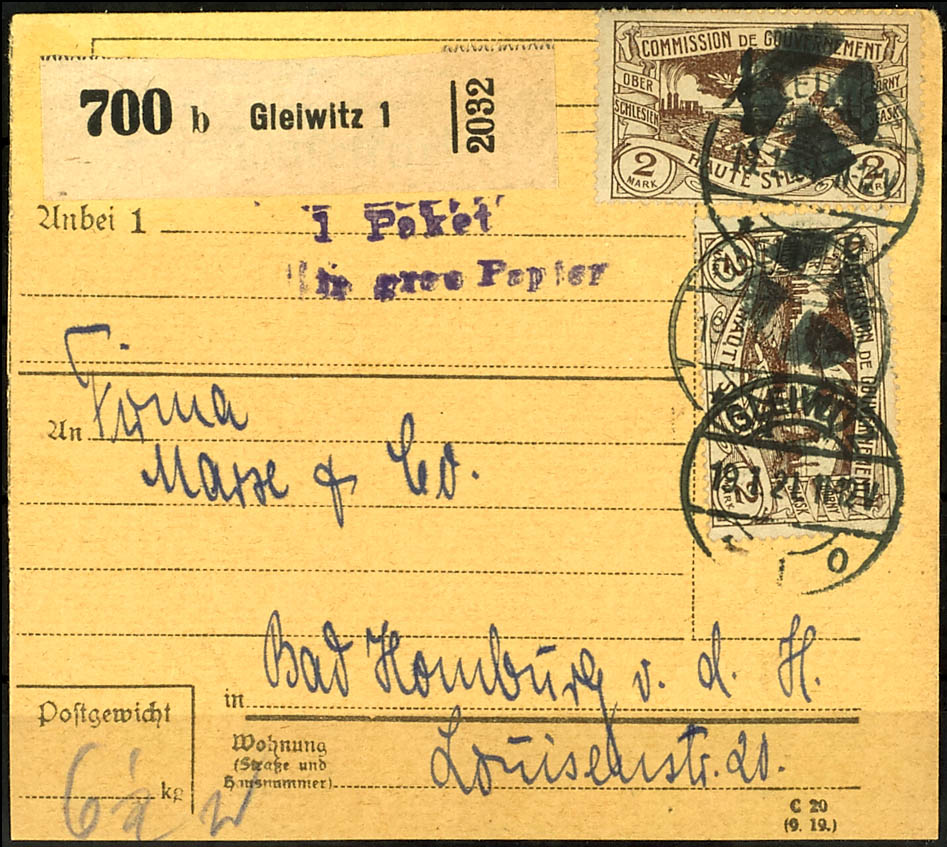 700 b Gleiwitz 1 2032
COMMISSION DE GOUVERNEMENT
OBER SCHLESIEN
HAUTE
2 MARK
2
Anbei 1 1 Paket
in grau Papier
HAUTE
2
GLEIWITZ
19.1.21 11-12V
An Firma
Masse & Co.
Bad Homburg v. d. H.
in
Postgewicht
Wohnung
(Straße und
Hausnummer)
Louisenstr. 20.
6½ kg
C 20
(9. 19.)